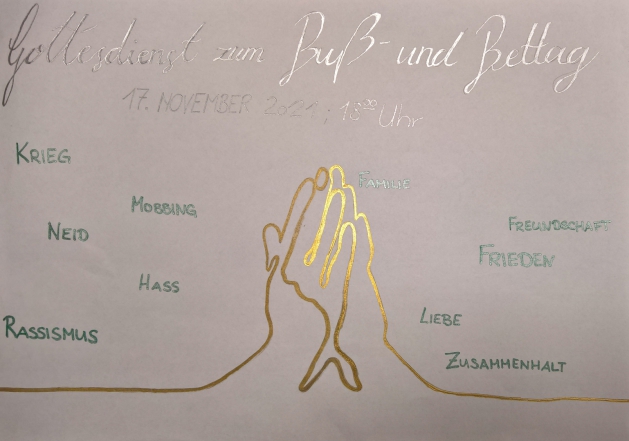 Gottesdienst zum Buß- und Bettag
17. NOVEMBER 2021, 18⁰⁰ Uhr
KRIEG
MOBBING
NEID
HASS
RASSISMUS
FAMILIE
FREUNDSCHAFT
FRIEDEN
LIEBE
ZUSAMMENHALT